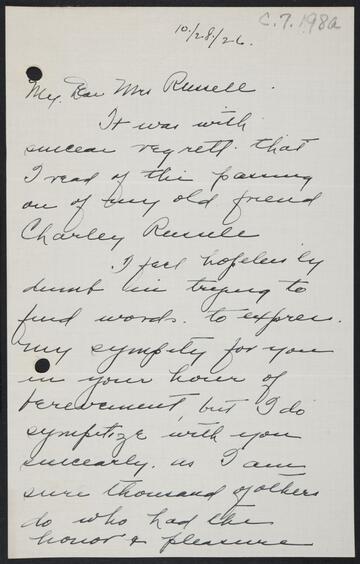 C.7.198a
10/28/26.
My. Dear Mrs Russell.
It was with
sincear regrett. that
I read of the passing
on of my old friend
Charley Russell
I feel hopelessly
dumb in trying to
find words. to express.
my sympity for you
in your hour of
berevement, but I do
sympatize with you
sincearly. as I am
sure thousand of others
do who had the
honor & pleasure